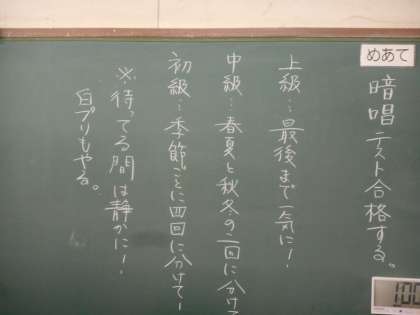 めあて
暗唱テスト合格する。
上級…最後まで一気に!
中級…春夏と秋冬の二回に分け
初級…季節ごとに四回に分けて!
※待ってる間は静かに!
白プリもやる。
1:00